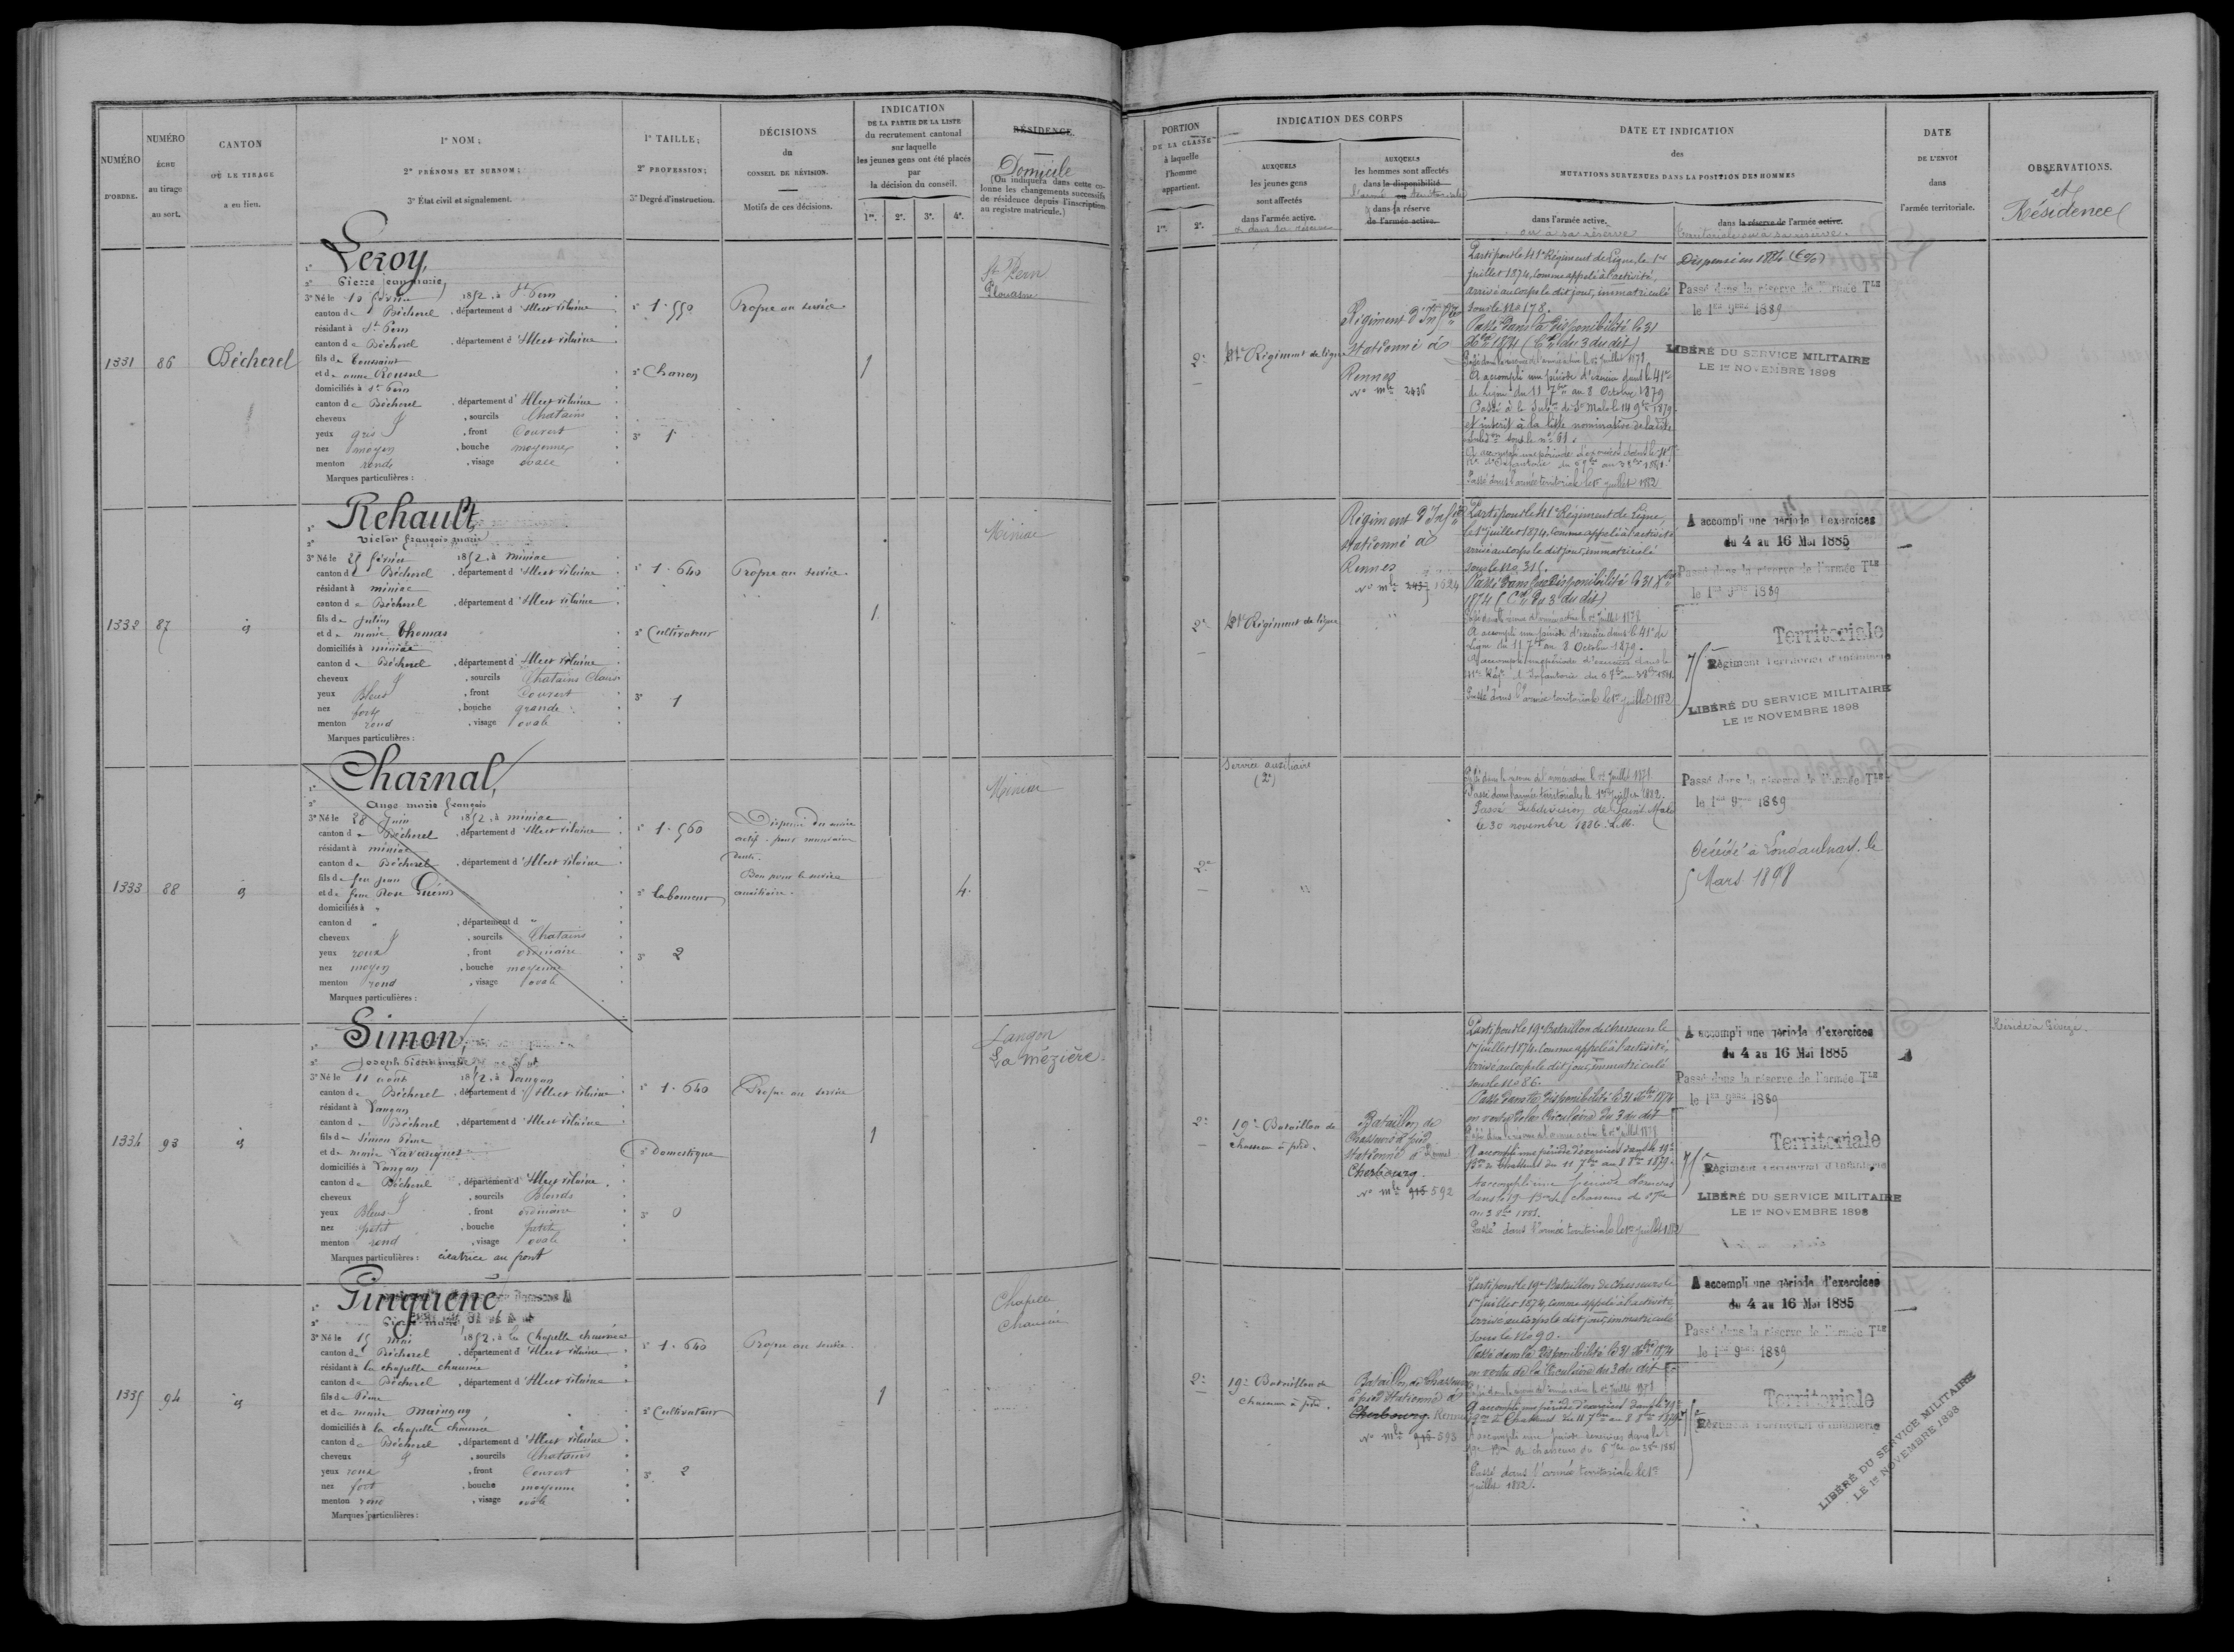 NUMÉRO
D'ORDRE.
NUMÉRO
ÉCHU
au tirage
au sort.
CANTON
OÙ LE TIRAGE
a eu lieu.
1º NOM;
2º PRÉNOMS ET SURNOM;
3º État civil et signalement.
1º TAILLE;
2º PROFESSION;
3º Degré d'instruction.
DÉCISIONS
du
CONSEIL DE RÉVISION.
Motifs de ces décisions.
INDICATION
DE LA PARTIE DE LA LISTE
du recrutement cantonal
sur laquelle
les jeunes gens ont été placés
par
la décision du conseil.
1re. 2e. 3e. 4e.
RÉSIDENCE.
Domicile
(On indiquera dans cette co-
lonne les changements successifs
de résidence depuis l'inscription
au registre matricule.)
PORTION
DE LA CLASSE
à laquelle
l'homme
appartient.
1re. 2e.
INDICATION DES CORPS
AUXQUELS
les jeunes gens
sont affectés
dans l'armée active.
et dans sa réserve
AUXQUELS
les hommes sont affectés
dans la disponibilité
l'armée ou territoriale
dans sa réserve
de l'armée active.
DATE ET INDICATION
des
MUTATIONS SURVENUES DANS LA POSITION DES HOMMES
dans l'armée active.
ou à sa réserve
dans la réserve de l'armée active.
territoriale ou à sa réserve.
DATE
DE L'ENVOI
dans
l'armée territoriale.
OBSERVATIONS.
et
Résidence
1331 86 Bécherel
Leroy,
Pierre jean marie,
3º Né le 10 février 1852, à St Pern
canton de Bécherel, département d'Illeet vilaine
résidant à St Pern
canton de Bécherel, département d'Illeet vilaine
fils de Toussaint
et de anne Roussel
domiciliés à St Pern
canton de Bécherel, département d'Illeet vilaine
cheveux, sourcils Chatains
yeux gris, front Couvert
nez moyen, bouche moyenne
menton rond, visage ovale
Marques particulières :
1º 1.550
2º Charron
3º 1
Propre au service
1
St Pern
Plouasne
2e
41e Régiment de ligne
Régiment d'Infrie
stationné à
Rennes
No mle 2436
Parti pour le 41e Régiment de Ligne, le 1er
juillet 1874, comme appelé à l'activité,
arrivé au Corps le dit jour, immatriculé
sous le No 178.
Passé dans la disponibilité le 31
Xbre 1874 (Cre du 3 du dit)
Passé dans la réserve de l'armée active le 1er juillet 1878.
A accompli une période d'exercice dans le 41e
de Ligne du 11 7bre au 8 Octobre 1879
Passé à la Subon de St Malo le 14 9bre 1879
et inscrit à la liste nominative de la dite
subdon sous le no 61.
A accompli une période d'exercices dans le 41e
Rt d'Infanterie du 6 7bre au 3 8bre 1881.
Passé dans l'armée territoriale le 1er juillet 1882
Dispensé en 1884
Passé dans la réserve de l'armée Tle
le 1er 9bre 1889
LIBÉRÉ DU SERVICE MILITAIRE
LE 1er NOVEMBRE 1898
1332 87 id
Rehault,
Victor françois marie
3º Né le 25 février 1852, à miniac
canton de Bécherel, département d'Illeet vilaine
résidant à miniac
canton de Bécherel, département d'Illeet vilaine
fils de Julien
et de marie Thomas
domiciliés à miniac
canton de Bécherel, département d'Illeet vilaine
cheveux, sourcils Chatains Clairs
yeux Bleus, front Couvert
nez fort, bouche grande
menton rond, visage ovale
Marques particulières :
1º 1.640
2º Cultivateur
3º 1
Propre au service.
1
Miniac
2e
41e Régiment de ligne
Régiment d'Infrie
stationné à
Rennes
No mle 1624
Parti pour le 41e Régiment de Ligne,
le 1er juillet 1874, comme appelé à l'activité
arrivé au Corps le dit jour, immatriculé
sous le No 315.
Passé dans la disponibilité le 31 Xbre
1874 (Cre du 3 du dit)
Passé dans la réserve de l'armée active le 1er juillet 1878
A accompli une période d'exercice dans le 41e de
Ligne du 11 7bre au 8 Octobre 1879.
A accompli une période d'exercices dans le
41e Régt d'Infanterie du 6 7bre au 3 8bre 1881.
Passé dans l'armée territoriale le 1er juillet 1882
A accompli une période d'exercices
du 4 au 16 Mai 1885
Passé dans la réserve de l'armée Tle
le 1er 9bre 1889
Territoriale
75e Régiment Territorial d'Infanterie
LIBÉRÉ DU SERVICE MILITAIRE
LE 1er NOVEMBRE 1898
1333 88 id
Charnal,
Ange marie françois
3º Né le 28 Juin 1852, à miniac
canton de Bécherel, département d'Illeet vilaine
résidant à miniac
canton de Bécherel, département d'Illeet vilaine
fils de feu jean
et de feue Rose
domiciliés à "
canton d ", département d "
cheveux, sourcils Chatains
yeux roux, front ordinaire
nez moyen, bouche moyenne
menton rond, visage ovale
Marques particulières :
1º 1.560
2º Laboureur
3º 2
Dispensé du service
actif. pour mauvaise
denture.
Bon pour le service
auxiliaire.
4.
Miniac
2e
Service auxiliaire
(2e)
Passé dans la réserve de l'armée active le 1er Juillet 1878
Passé dans l'armée territoriale le 1er juillet 1882.
Passé Subdivision de Saint Malo
le 30 novembre 1886.
Passé dans la réserve de l'armée Tle
le 1er 9bre 1889
Décédé à Longaulnay. le
5 Mars 1898
1334 93 id
Simon,
Joseph Pierre marie
3º Né le 11 août 1852, à Langan
canton de Bécherel, département d'Illeet vilaine
résidant à Langan
canton de Bécherel, département d'Illeet vilaine
fils de Simon Pierre
et de marie
domiciliés à Langan
canton de Bécherel, département d'Illeet vilaine
cheveux, sourcils Blonds
yeux Bleus, front ordinaire
nez petit, bouche petite
menton rond, visage ovale
Marques particulières : cicatrice au front
1º 1.640
2º Domestique
3º 0
Propre au service
1
Langan
La Mézière
2e
19e Bataillon de
chasseurs à pied.
Bataillon de
Chasseurs à pied
stationné à Rennes
Cherbourg.
No mle 592
Parti pour le 19e Bataillon de chasseurs le
1er juillet 1874, comme appelé à l'activité,
arrivé au Corps le dit jour, immatriculé
sous le No 86.
Passé dans la disponibilité le 31 Xbre 1874
en vertu de la Circulaire du 3 du dit
Passé dans la réserve de l'armée active le 1er juillet 1878
A accompli une période d'exercices dans le 19e
Bon de Chasseurs du 11 7bre au 8 8bre 1879.
A accompli une période d'exercices
dans le 19e Bon de chasseurs du 6 7bre
au 3 8bre 1881.
Passé dans l'armée territoriale le 1er juillet 1882
A accompli une période d'exercices
du 4 au 16 Mai 1885
Passé dans la réserve de l'armée Tle
le 1er 9bre 1889
Territoriale
75e Régiment Territorial d'Infanterie
LIBÉRÉ DU SERVICE MILITAIRE
LE 1er NOVEMBRE 1898
Réside à
1335 94 id
Pinquené
Pierre marie
3º Né le 15 mai 1852, à la Chapelle chaussée
canton de Bécherel, département d'Illeet vilaine
résidant à la chapelle chaussée
canton de Bécherel, département d'Illeet vilaine
fils de Pierre
et de marie
domiciliés à la chapelle chaussée
canton de Bécherel, département d'Illeet vilaine
cheveux, sourcils Chatains
yeux roux, front Couvert
nez fort, bouche moyenne
menton rond, visage ovale
Marques particulières :
1º 1.640
2º Cultivateur
3º 2
Propre au service.
1
Chapelle
Chaussée
2e
19e Bataillon de
chasseurs à pied.
Bataillon de Chasseurs
à pied stationné à
Cherbourg. Rennes
No mle 593
Parti pour le 19e Bataillon de chasseurs le
1er juillet 1874, comme appelé à l'activité,
arrivé au Corps le dit jour, immatriculé
sous le No 90.
Passé dans la disponibilité le 31 Xbre 1874
en vertu de la Circulaire du 3 du dit
Passé dans la réserve de l'armée active le 1er juillet 1878
A accompli une période d'exercices dans le 19e
Bon de Chasseurs du 11 7bre au 8 8bre 1879
A accompli une période d'exercices dans le
19e Bon de chasseurs du 6 7bre au 3 8bre 1881
Passé dans l'armée territoriale le 1er
juillet 1882.
A accompli une période d'exercices
du 4 au 16 Mai 1885
Passé dans la réserve de l'armée Tle
le 1er 9bre 1889
Territoriale
75e Régiment Territorial d'Infanterie
LIBÉRÉ DU SERVICE MILITAIRE
LE 1er NOVEMBRE 1898